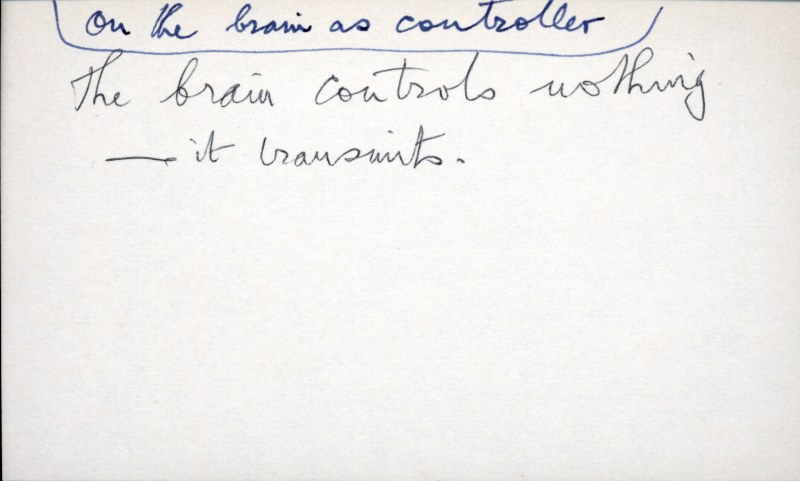 On the brain as controller
The brain controls nothing
— it transmits.